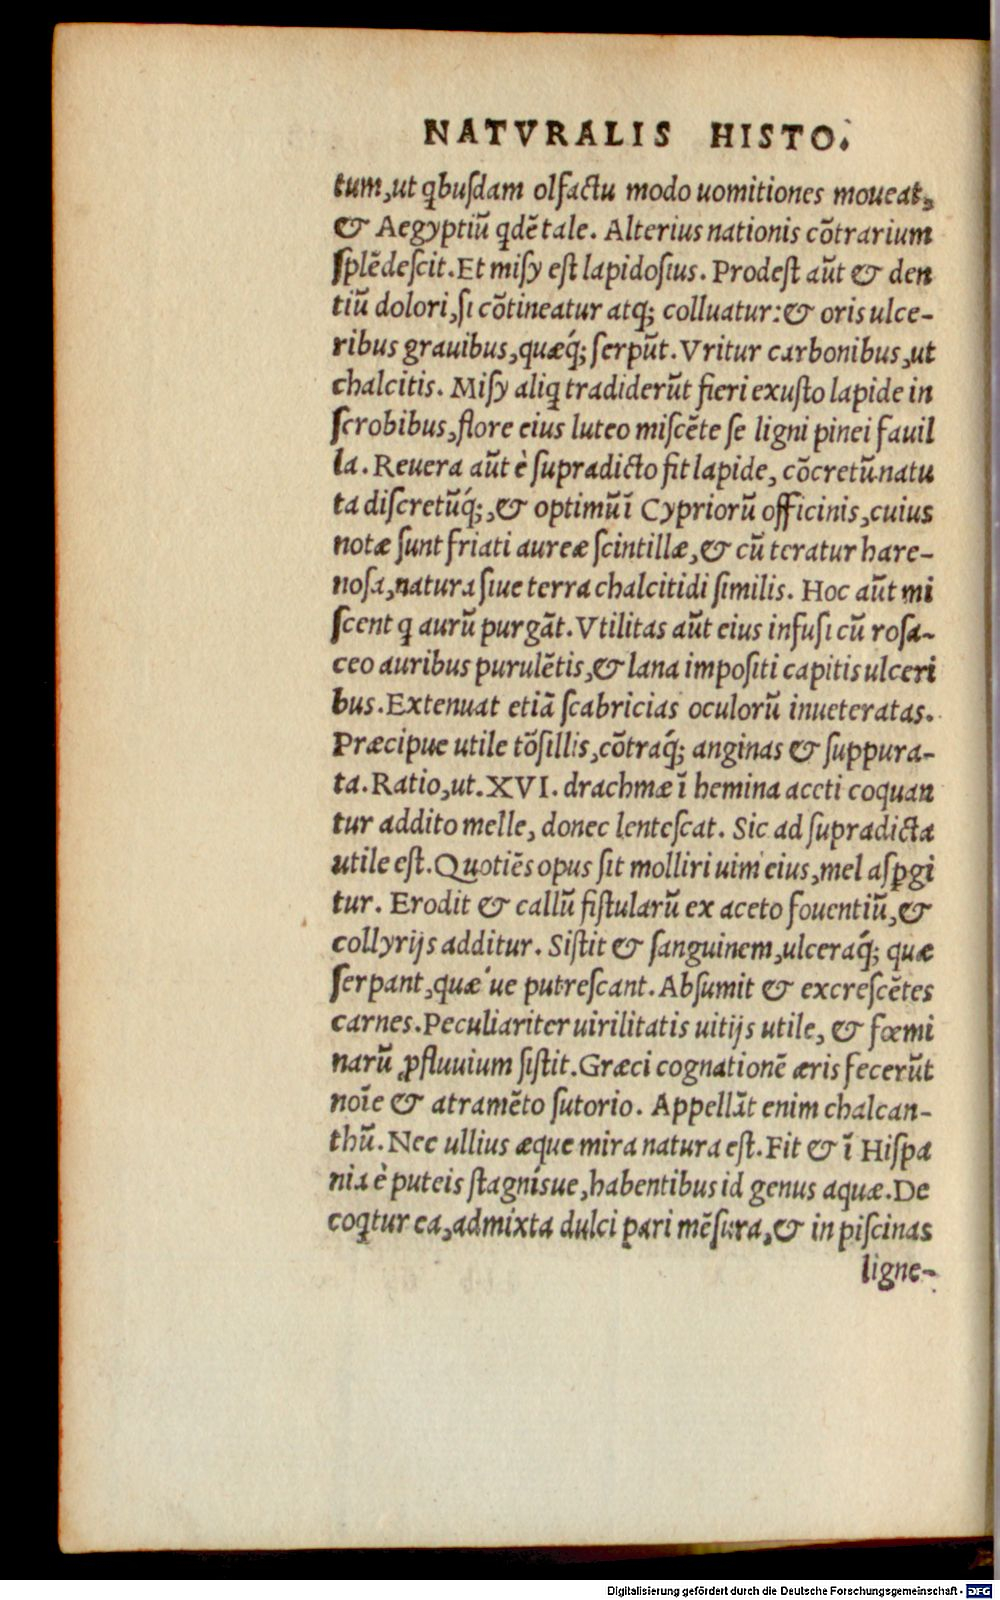 NATVRALIS HISTO.
tum, ut qbusdam olfactu modo uomitiones moueat,
& Aegyptiũ qdẽ tale. Alterius nationis cõtrarium
splẽdescit. Et misy est lapidosius. Prodest aũt & den
tiũ dolori, si cõtineatur atq; colluatur: & oris ulce-
ribus grauibus, quæq́; serpũt. Vritur carbonibus, ut
chalcitis. Misy aliq tradiderũt fieri exusto lapide in
scrobibus, flore eius luteo miscẽte se ligni pinei fauil
la. Reuera aũt è supradicto fit lapide, cõcretũ natu
ta discretũq́;, & optimũ ĩ Cypriorũ officinis, cuius
notæ sunt friati aureæ scintillæ, & cũ teratur hare-
nosa, natura siue terra chalcitidi similis. Hoc aũt mi
scent q aurũ purgãt. Vtilitas aũt eius infusi cũ rosa-
ceo auribus purulẽtis, & lana impositi capitis ulceri
bus. Extenuat etiã scabricias oculorũ inueteratas.
Præcipue utile tõsillis, cõtraq́; anginas & suppura-
ta. Ratio, ut. XVI. drachmæ ĩ hemina aceti coquan
tur addito melle, donec lentescat. Sic ad supradicta
utile est. Quotiẽs opus sit molliri uim eius, mel aspgi
tur. Erodit & callũ fistularũ ex aceto fouentiũ, &
collyrijs additur. Sistit & sanguinem, ulceraq́; quæ
serpant, quæ'ue putrescant. Absumit & excrescẽtes
carnes. Peculiariter uirilitatis uitijs utile, & fœmi
narũ ꝓfluuium sistit. Græci cognationẽ æris fecerũt
noĩe & atramẽto sutorio. Appellãt enim chalcan-
thũ. Nec ullius æque mira natura est. Fit & ĩ Hispa
nia è puteis stagnísue, habentibus id genus aquæ. De
coqtur ea, admixta dulci pari mẽsura, & in piscinas
ligne-
Digitalisierung gefördert durch die Deutsche Forschungsgemeinschaft - DFG